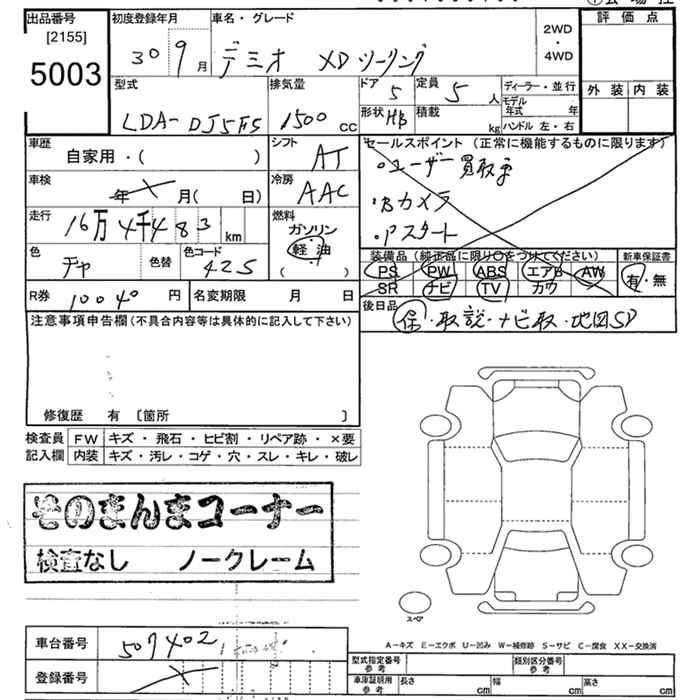 出品番号 初度登録年月 車名・グレード 評価点
[2155]
5003
30 9月 デミオ XDツーリング 2WD・4WD
外装 内装
型式 排気量 ドア 定員 ディーラー・並行
LDA-DJ5FS 1500 CC 5 5 人 モデル年式 年
形状 HB 積載 kg ハンドル 左・右
車歴 自家用・( ) シフト AT
セールスポイント(正常に機能するものに限ります)
・ユーザー買取車
・Bカメラ
・Pスタート
車検 年 月(日) 冷房 AAC
走行 16万4千483 km 燃料 ガソリン
軽油
( )
色 チャ 色替 色コード 42S
装備品(純正品に限り○をつけてください) 新車保証書
PS PW ABS エアB AW 有・無
SR ナビ TV カワ
R券 10040 円 名変期限 月 日
後日品 保・取説・ナビ取・地図SD
注意事項申告欄(不具合内容等は具体的に記入して下さい)
修復歴 有 〔箇所 〕
検査員 FW キズ・飛石・ヒビ割・リペア跡・×要
記入欄 内装 キズ・汚レ・コゲ・穴・スレ・キレ・破レ
そのまんまコーナー
検査なし ノークレーム
スペア
A−キズ E−エクボ U−凹み W−補修跡 S−サビ C−腐食 XX−交換済
車台番号 507402
型式指定番号 参考 類別区分番号 参考
登録番号
車庫証明用 参考 長さ cm 幅 cm 高さ cm